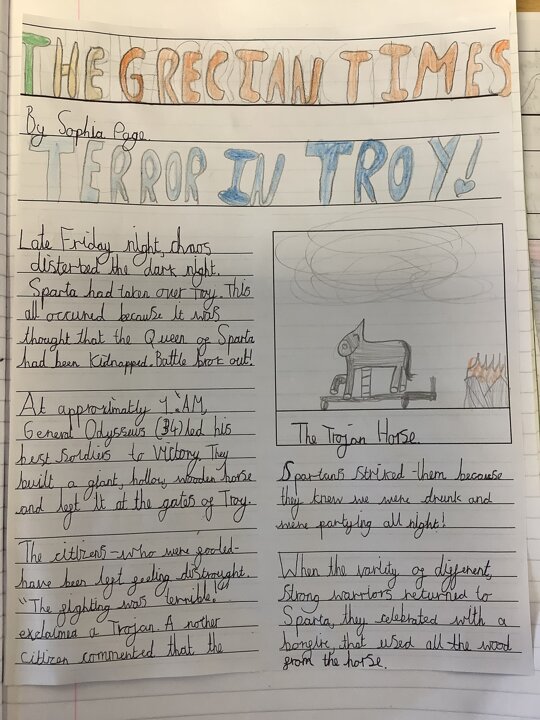 THE GRECIAN TIMES
By Sophia Page
TERROR IN TROY!
Late Friday night, chaos
disterbed the dark night.
Sparta had taken over Troy. This
all occured because it was
thought that the Queen of Sparta
had been kidnapped. Battle brok out!
At approximatly 1:AM,
General Odysseus (34) led his
best soldiers to victory. They
built a giant, hollow, wooden horse
and left it at the gates of Troy.
The citizens-who were fooled-
have been left feeling distrought.
"The fighting was terrible!"
exclaimed a Trojan. A nother
citizen commented that the
The Trojan Horse.
Spartans striked them because
they knew we were drunk and
were partying all night!
When the varity of different,
strong warriors returned to
Sparta, they celebrated with a
bonfire, that used all the wood
from the horse.